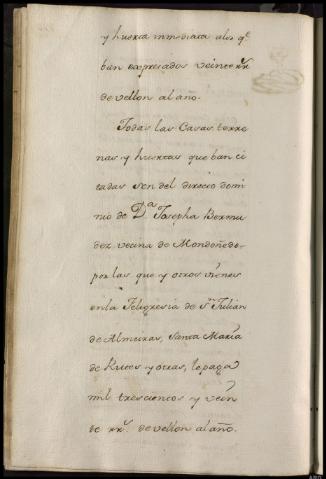 y huerta inmediata alos qᵉ
ban expresados veinte rˢ
de vellon al año.
Todas las Casas, terre
nas y huertas que ban ci
tadas son del directo domi
nio de Dª Josepha Bermu
dez vecina de Mondoñedo,
por las que y otros vienes
enla Feligresia de Sⁿ Julian
de Almeiras, Santa María
de Rutis y otras, le paga
mil trescientos y vein
te rˢ. de vellon al año.